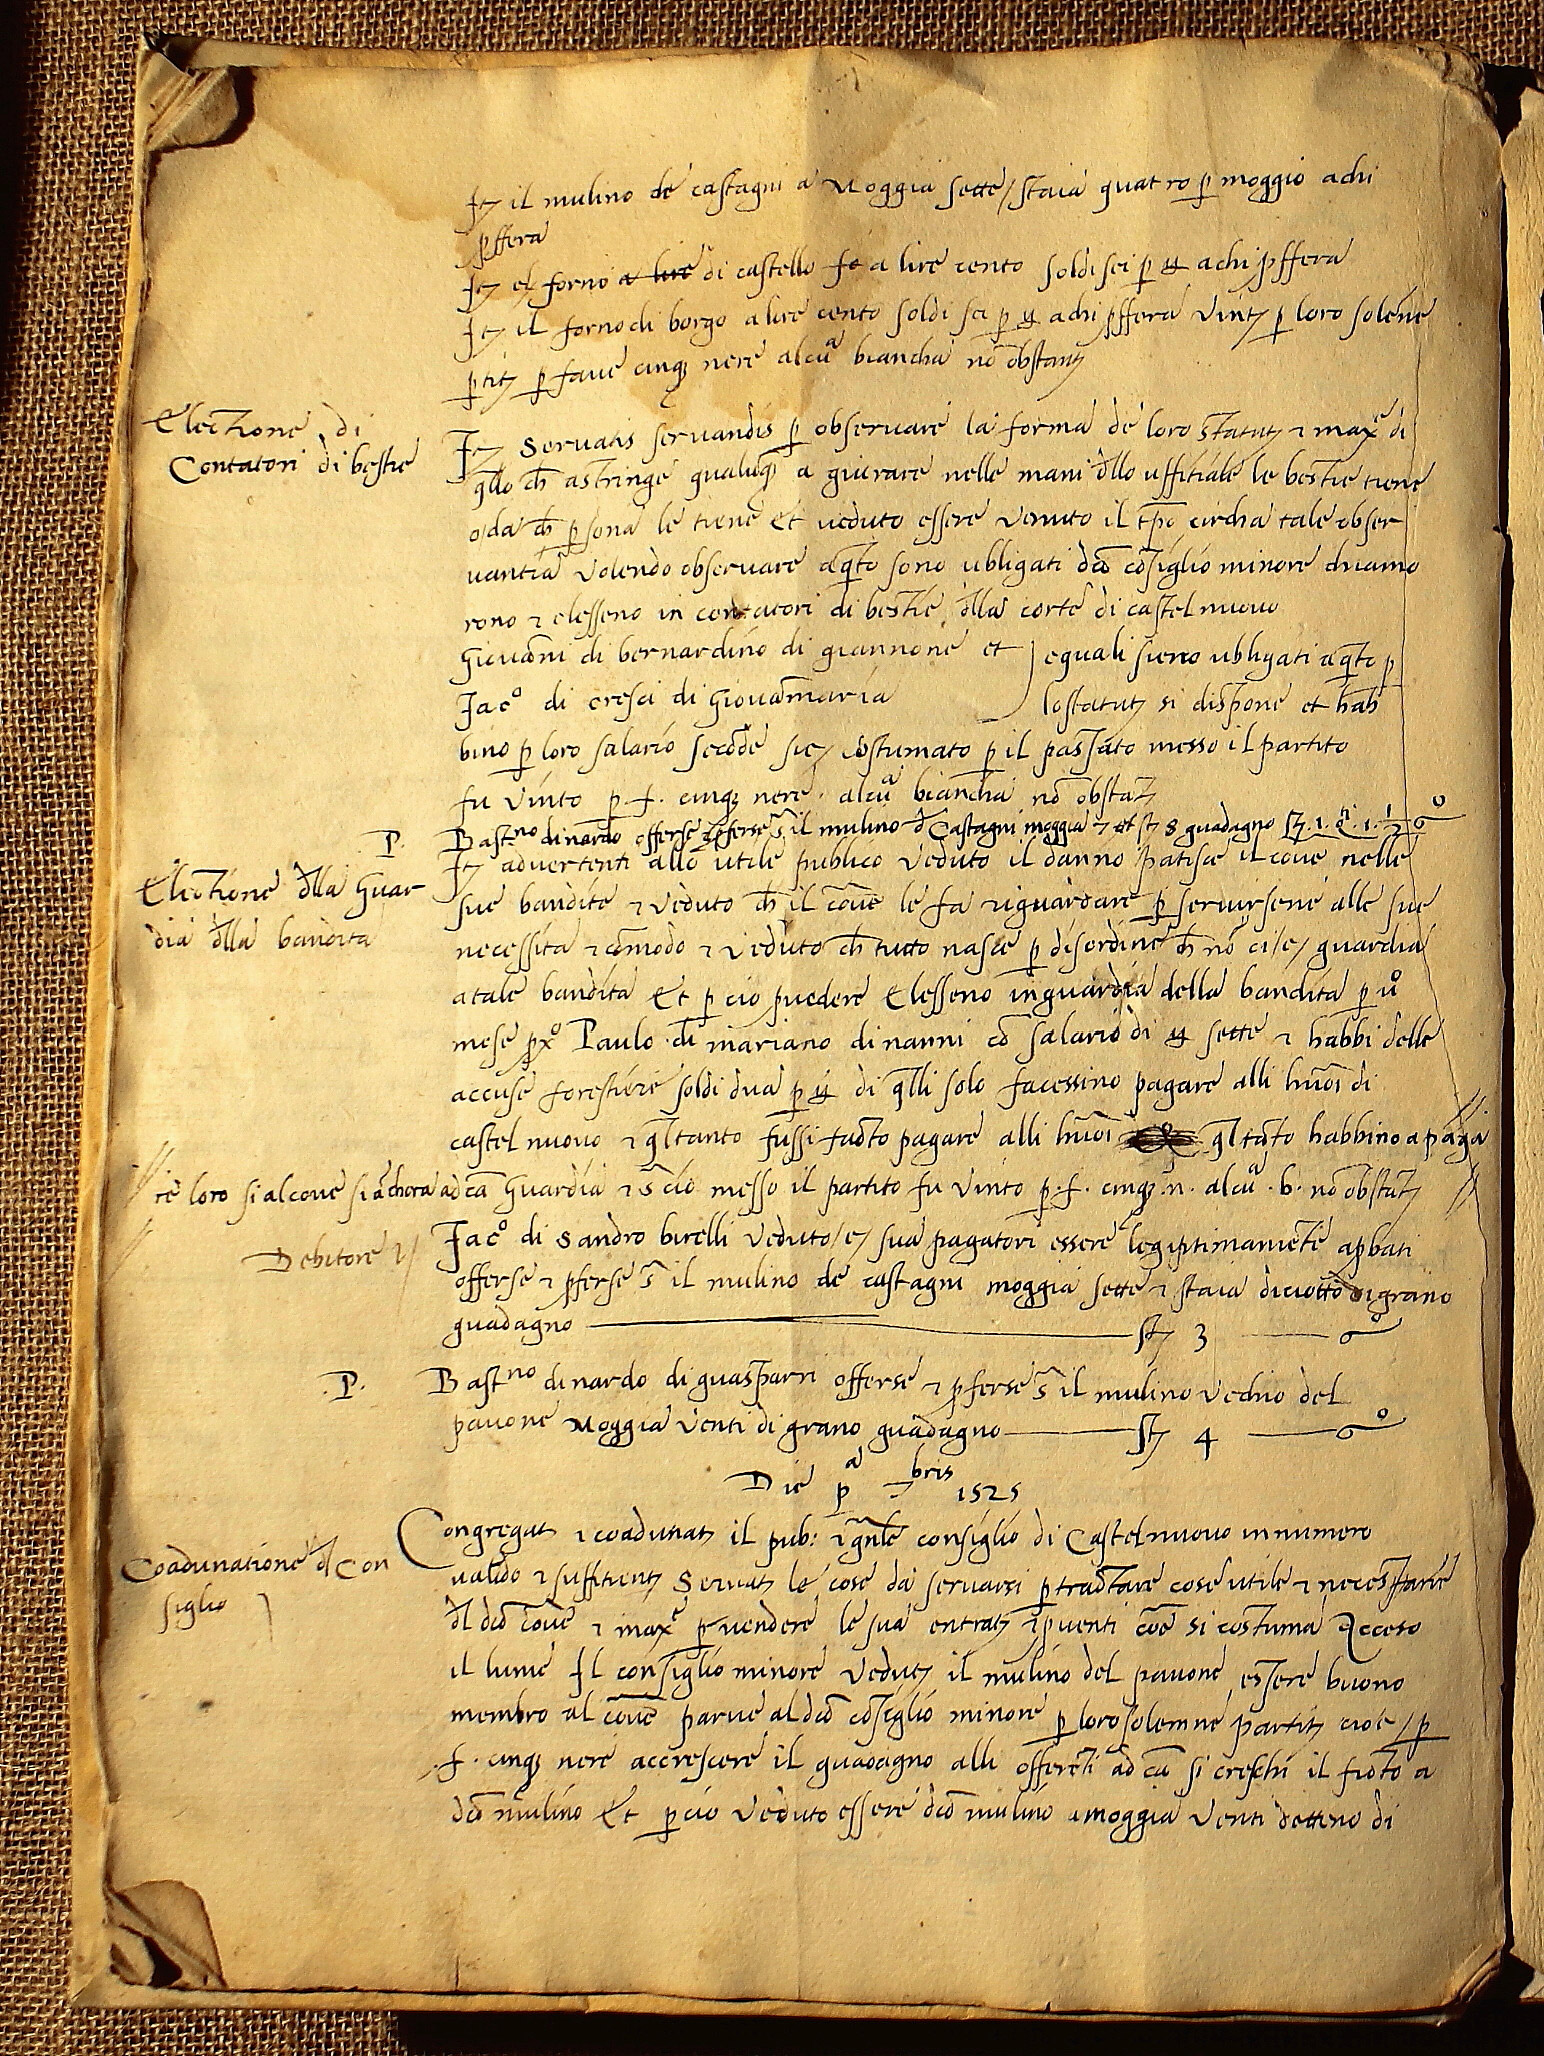 Itȝ il mulino de castagni a Moggia sette / staia quatro p̱ moggio a chi
pfferà
Itȝ el forno a lire di castello fo a lire cento soldi sei p̱ ₶ a chi pfferà
Itȝ il forno di borgo a lire cento soldi sei p̱ ₶ a chi pfferà Vintȝ p̱ loro solēne
ptitȝ p̱ faue cinqȝ nere alcūa biancha nō obstantȝ
Electione di
Contatori di bestie
Itȝ Servatis servandis p̱ observare la forma de loro statutȝ ⁊ maxᵉ di
qllo cħ astringe qualūqȝ a giurare nelle mani dllo uffitiale le bestie tiene
o / da cħ p̱sona le tiene et veduto essere venuto il tpō circha tale obser
vantia Volendo observare aqto sono ubligati dco cōsiglio minore chiamo
rono ⁊ elesseno in contatori di bestie dlla corte di castelnuovo
Giovāni di bernardino di giannone et
Jacº di cresci di Giovāmaria
e quali sieno ubligati aqto p̱
lo statutȝ si dispone et hab
bino p̱ loro salario secōdo sie costumato p̱ il passato messo il partito
fu vinto p̱ .f. cinqȝ nere . alcūa biancha nō obstatȝ
P.
Bastⁿᵒ di nardo offerse ⁊ pferse s̄ il mulino d Castagni moggia 7 et stȝ 8 guadagno
Electione dlla Guar
dia dlla bandita
Itȝ advertenti allo utile publico veduto il danno patisce il coūe nelle
sue bandite ⁊ veduto cħ il coūe le fa riguardare p̱ servirsene alle sue
necessita ⁊ cōmodo ⁊ veduto cħ tutto nasce p̱ disordine cħ nō ci / e guardia
a tale bandita Et p̱ cio pvedere Elesseno in guardia della bandita p̱ uº
mese pxº Paulo di mariano di nanni cō salario di ₶ sette ⁊ habbi delle
accuse forestiere soldi dua p̱ ₶ di qlli solo facessino pagare alli huōi di
castelnuovo ⁊ qltanto fussi facto pagare alli huōi qltāto habbino a paga
re loro si al coūe si āchora ad cā Guardia ⁊ s̄ cio messo il partito fu vinto p̱ .f. cinqȝ .n. alcūa .b. nō obstatȝ
Debitore
Jacº di Sandro birelli veduto / e sua pagatori essere legiptimamēte apbati
offerse ⁊ pferse s̄ il mulino de castagni moggia sette ⁊ staia diciotto di grano
guadagno — stȝ 3 —
.P.
Bastⁿᵒ di nardo di guasparri offerse ⁊ pferse s̄ il mulino Vechio del
pavone Moggia Venti di grano guadagno — Stȝ 4 —
Die pᵃ 7bris 1525
Coadunatione d Con
siglio
Congregatȝ ⁊ coadunatȝ il pub: ⁊ gnāle consiglio di Castelnuovo in numero
valido ⁊ suffitientȝ Servatȝ le cose da servarsi p̱ tractare cose utile ⁊ necessarie
dl dco coūe ⁊ maxᵉ p̱ vendere le sua entratȝ ⁊ pventi coē si costuma Acceso
il lume Il consiglio minore vedutȝ il mulino del pavone essere buono
membro al coūe parve al dco cōsiglio minore p̱ loro solemne partitȝ cioe / p̱
.f. cinqȝ nere accrescere il guadagno alli offerēti ad cā si creschi il ficto a
dco mulino Et p̱ cio veduto essere dco mulino a moggia venti detteno di